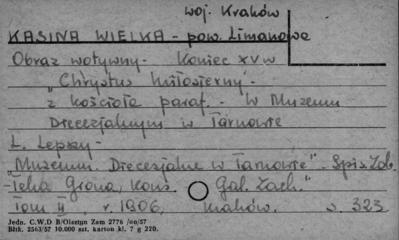 woj. Kraków
KASINA WIELKA - pow. Limanowa
Obraz wotywny - Koniec XV w
"Chrystus Miłosierny" -
z kościoła paraf. - w Muzeum
Diecezjalnym w Tarnowie
Ł. Lepszy -
"Muzeum Diecezjalne w Tarnowie" - Spis Zab.
- Teka Grona Kons. Gal. Zach."
Tom II r. 1906, Kraków. s. 323
Jedn. C.W.D B/Olsztyn Zam 2776 /on/57
Błtk. 2563/57 10.000 szt. karton kl. 7 g 220.